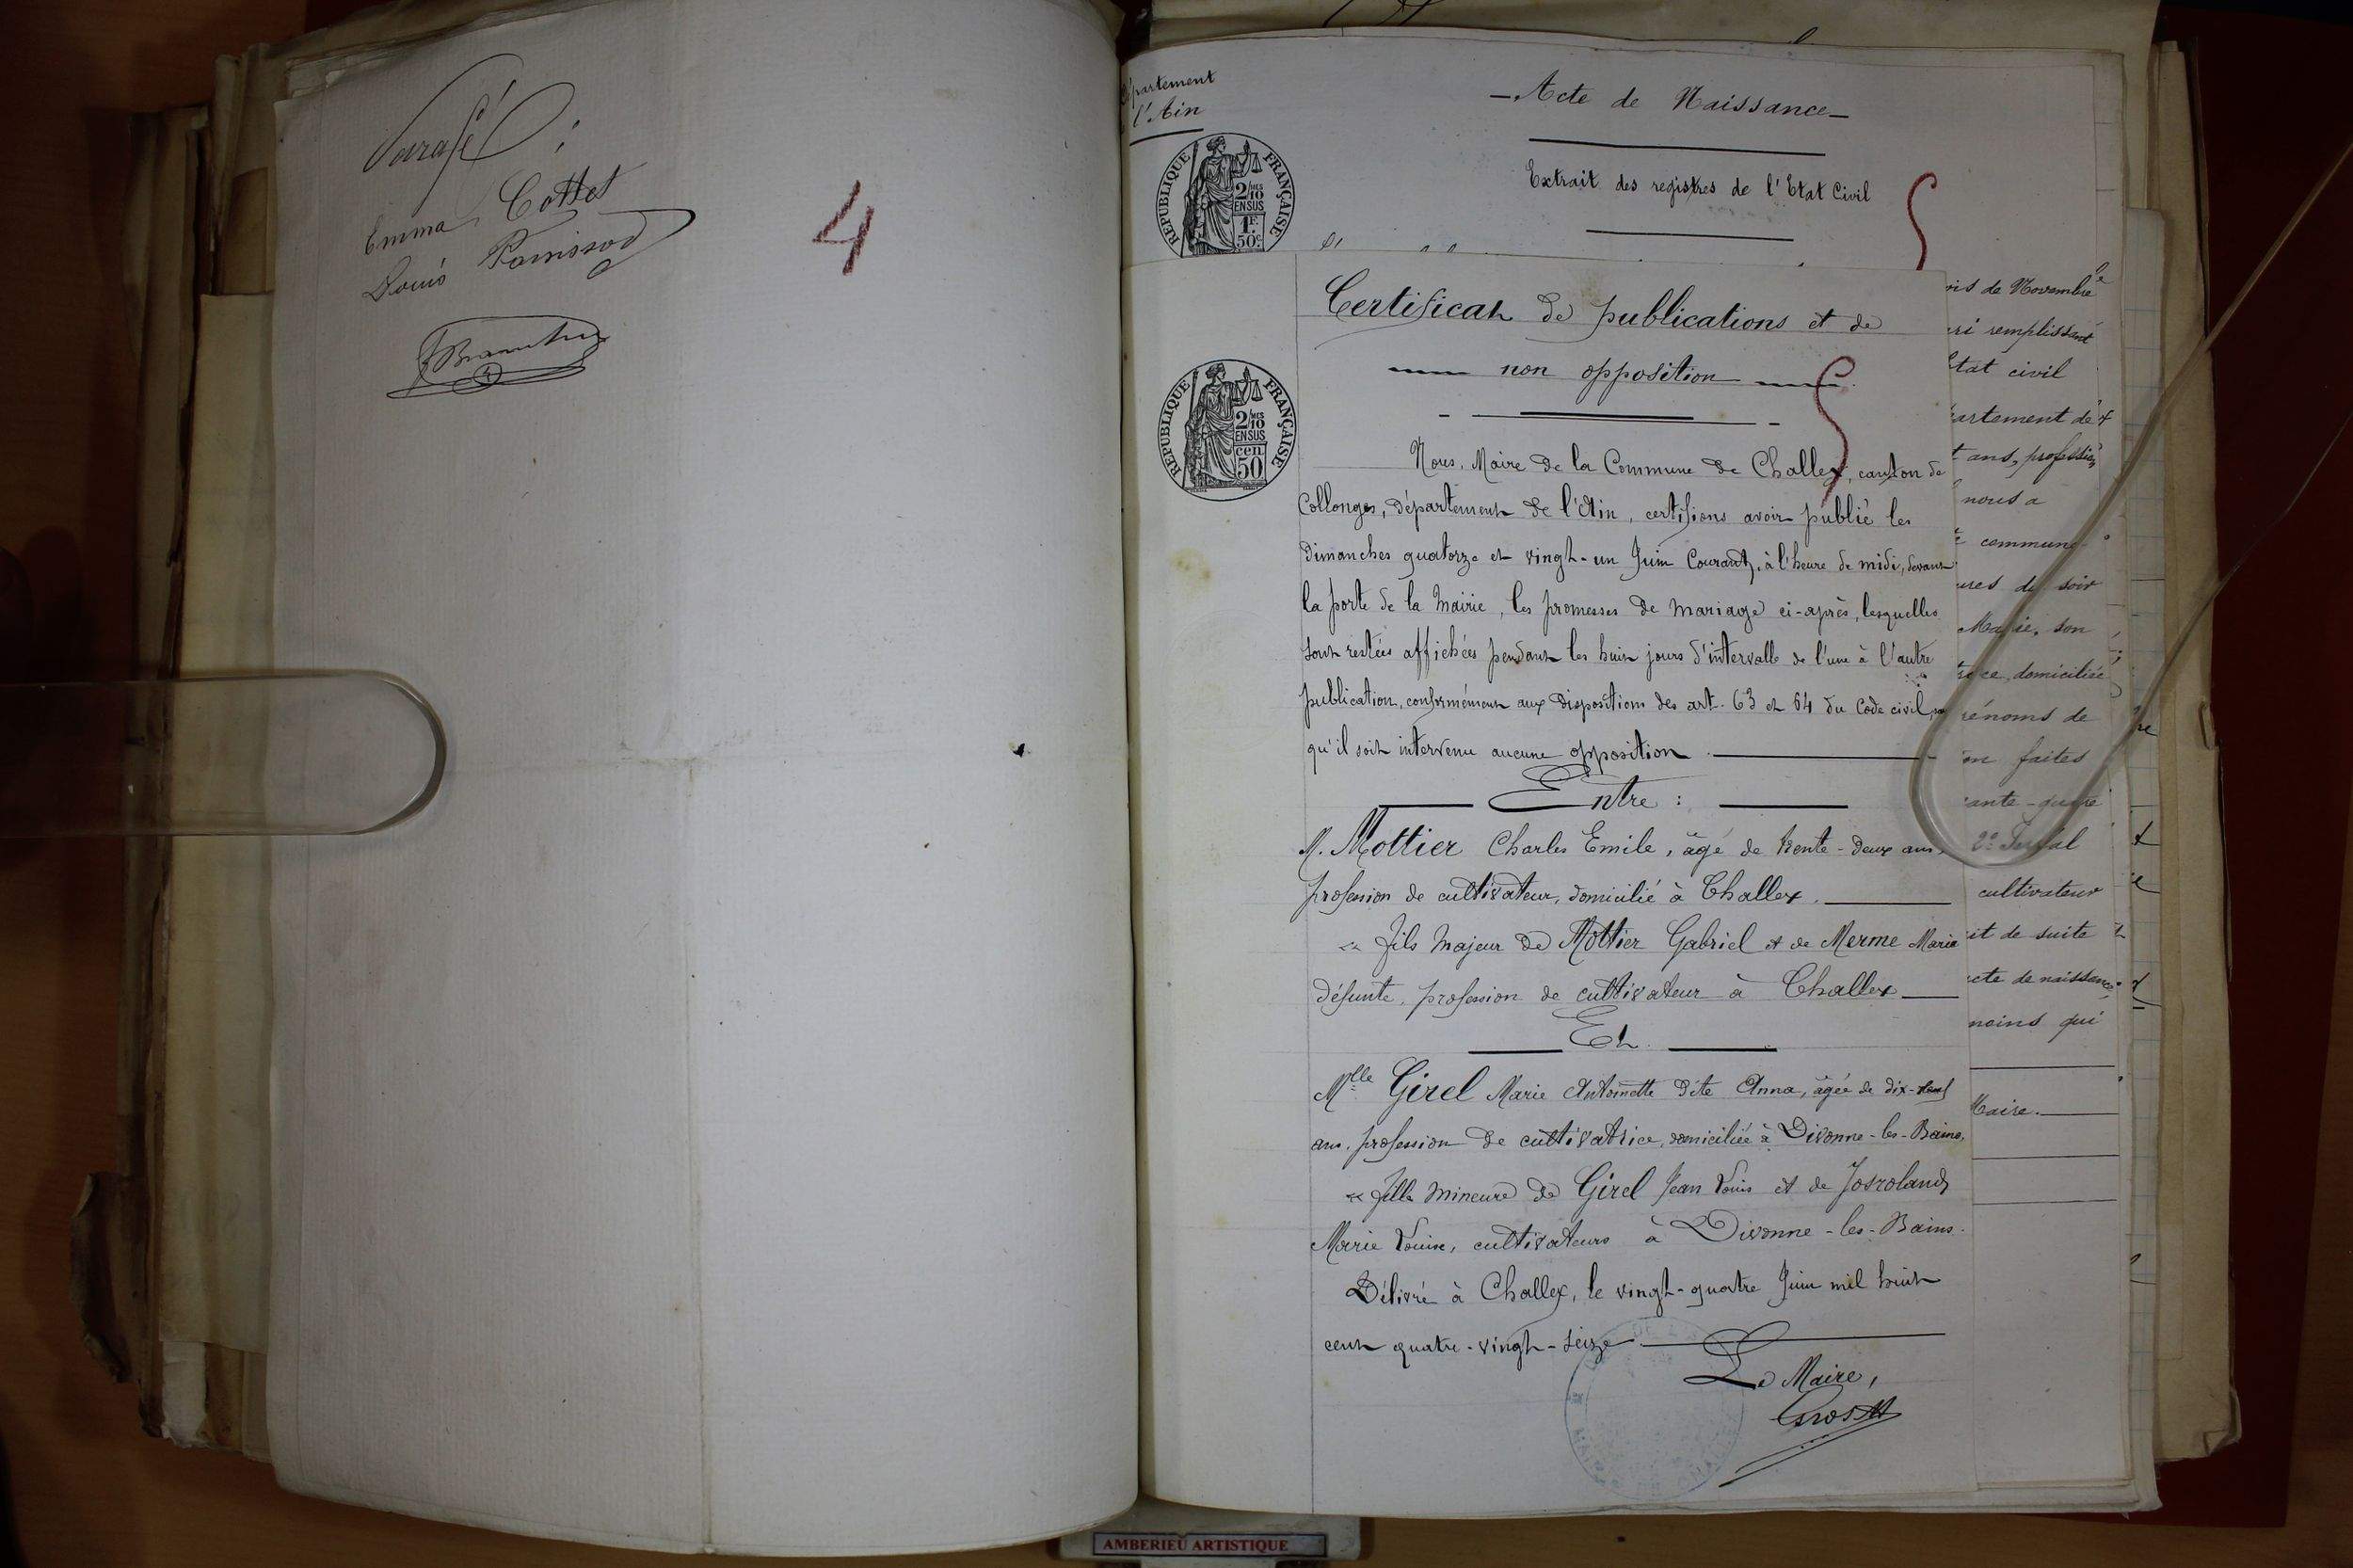 Parafé :
Emma Cottet
Louis Panissod
4
Département
l'Ain
— Acte de Naissance —
Extrait des registres de l'Etat Civil
RÉPUBLIQUE FRANÇAISE
2/10 MES
EN SUS
1F.
50c
Certificat de publications et de
non opposition
RÉPUBLIQUE FRANÇAISE
2/10 MES
EN SUS
cen
50
Nous, Maire de la Commune de Challex, canton de
Collonges, département de l'Ain, certifions avoir publié les
dimanches quatorze et vingt-un Juin Courant, à l'heure de midi, devant
la porte de la Mairie, les promesses de mariage ci-après, lesquelles
sont restées affichées pendant les huit jours d'intervalle de l'une à l'autre
publication, conformément aux dispositions des art. 63 et 64 du Code civil,
qu'il soit intervenu aucune opposition
Entre :
M. Mottier Charles Emile, âgé de trente-deux ans,
profession de cultivateur, domicilié à Challex.
fils majeur de Mottier Gabriel et de Merme Marie
défunte, profession de cultivateur à Challex
Et
Mlle Girel Marie Antoinette dite Anna, âgée de dix-neuf
ans, profession de cultivatrice, domiciliée à Divonne-les-Bains,
fille mineure de Girel Jean Louis et de Josroland
Marie Louise, cultivateurs à Divonne-les-Bains.
Délivré à Challex, le vingt-quatre Juin mil huit
cent quatre-vingt-seize
Le Maire,
Gros
de Novembre
remplissant
Etat civil
artement de
ans, profession
nous a
commune
du soir
Marie, son
domiciliée
rénoms de
faites
ante-quatre
2°
cultivateur
it de suite
acte de naissance
moins qui
Maire.
AMBERIEU ARTISTIQUE